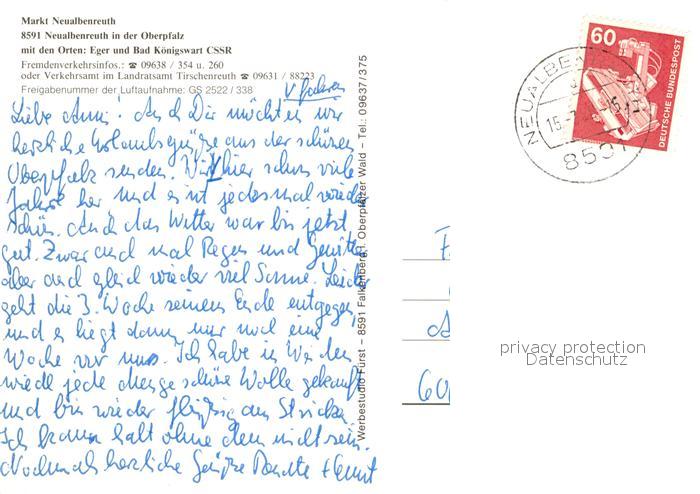 Markt Neualbenreuth
8591 Neualbenreuth in der Oberpfalz
mit den Orten: Eger und Bad Königswart CSSR
Fremdenverkehrsinfos.: ☎ 09638 / 354 u. 260
oder Verkehrsamt im Landratsamt Tirschenreuth ☎ 09631 / 88223
Freigabenummer der Luftaufnahme: GS 2522 / 338
V fahren
Liebe Anni! Auch Dir möchten wir
herzliche Urlaubsgrüße aus der schönen
Oberpfalz senden. Wir V hier schon viele
Jahre her und es ist jedesmal wieder
schön. Auch das Wetter war bis jetzt
gut. Zwar auch mal Regen und Gewitter
aber auch gleich wieder viel Sonne. Leider
geht die 3. Woche seinem Ende entgegen
und es liegt dann nur noch eine
Woche vor uns. Ich habe in Weiden
wieder jede Menge schöne Wolle gekauft
und bin wieder fleißig am Stricken.
Ich kann halt ohne dem nicht sein.
Nochmals herzliche Grüße
Werbestudio Fürst – 8591 Falkenberg i. Oberpfälzer Wald – Tel.: 09637/375
60
DEUTSCHE BUNDESPOST
NEUALBEN
15.
8591
60
privacy protection
Datenschutz